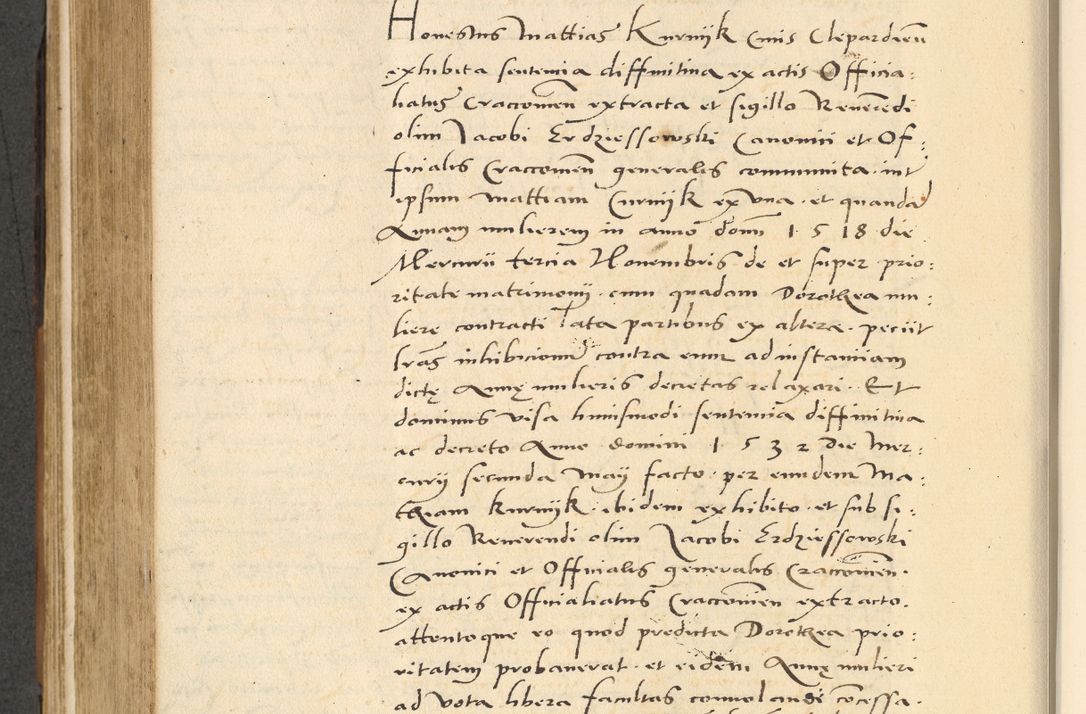 Honestus Mattias Kurnyk Civis Clepardien
exhibita sententia diffinitiva ex actis Officia:
liatus Craccovien extracta et sigillo Reverendi
olim Jacobi Erdziessowski Canonici et Of:
ficialis Craccovien generalis communita int
ipsum Mattiam Curnyk ex una et quandā
Annam mulierem in anno domini 1518 die
Mercurii tercia Novembris de et super prio:
ritate matrimonij cum quadam Dorothea mu:
liere contracti lata partibus ex altera peciit
lras inhibicionis contra eum ad instantiam
dictę Annę mulieris decretas relaxari Et
dominus visa huiusmodi sententia diffinitiva
ac decreto Anno domini 1532 die Mer:
curij secunda May facto per eundem Ma:
thiam Kurnyk ibidem exhibito et sub si:
gillo Reverendi olim Jacobi Erdziessowski
Canonici et Officialis generalis Craccovien
ex actis Officialiatus Craccovien extracto
attentoque eo quod predicta Dorothea prio:
ritatem probaverat et eidem Annę mulieri
ad vota libera facultas convolandi cōcessa